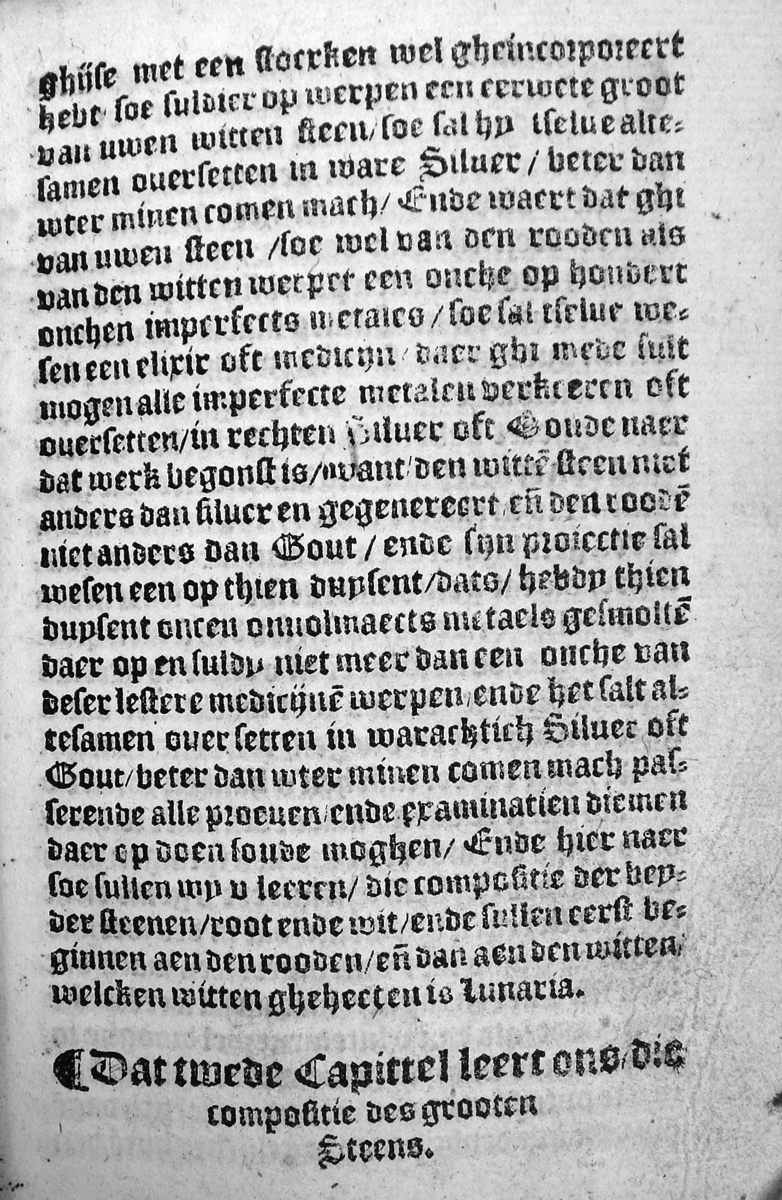 ghijse met een stocrken wel gheincorporeert
hebt soe suldier op werpen een eerwete groot
van uwen witten steen/soe sal hy tselue alte-
samen ouersetten in ware Siluer/ beter dan
wter minen comen mach/ Ende waert dat ghi
van uwen steen /soe wel van den rooden als
van den witten werpet een onche op hondert
onchen imperfects metales/soe sal tselue we-
sen een elixir oft medicijn/daer ghi mede sult
mogen alle imperfecte metalen verkeeren oft
ouersetten/in rechten Siluer oft Goude naer
dat werk begonst is/want/den wittē steen niet
anders dan siluer en gegenereert, eñ den roodē
niet anders dan Gout/ ende sijn proiectie sal
wesen een op thien duysent/dats/ hebdy thien
duysent oncen onuolmaects metaels gesmoltē
daer op en suldy niet meer dan een onche van
deser lestere medicijnē werpen/ende het salt al-
tesamen ouersetten in warachtich Siluer oft
Gout/beter dan wter minen comen mach pas-
serende alle proeuen/ende examinatien diemen
daer op doen soude moghen/ Ende hier naer
soe sullen wy v leeren/ die compositie der bey-
der steenen/root ende wit/ende sullen eerst be-
ginnen aen den rooden/eñ dan aen den witten/
welcken witten ghehecten is Lunaria.
¶Dat twede Capittel leert ons/die
compositie des grooten
Steens.